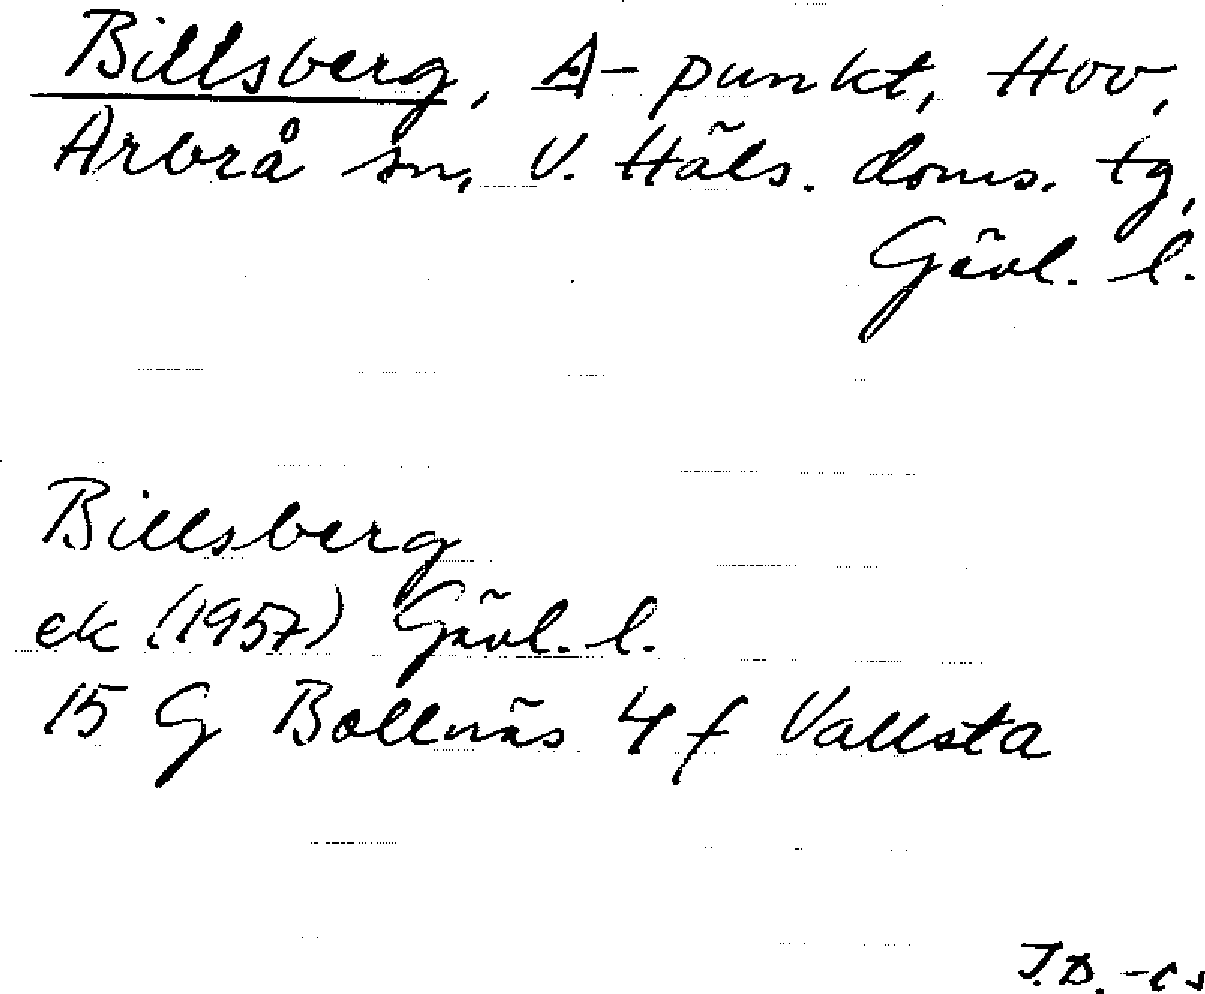 Billsberg, A-punkt, Hov,
Arbrå sn, V. Häls. doms. tg,
Gävl. l.
Billsberg
ek (1957) Gävl. l.
15 G Bollnäs 4 f Vallsta
J.D.